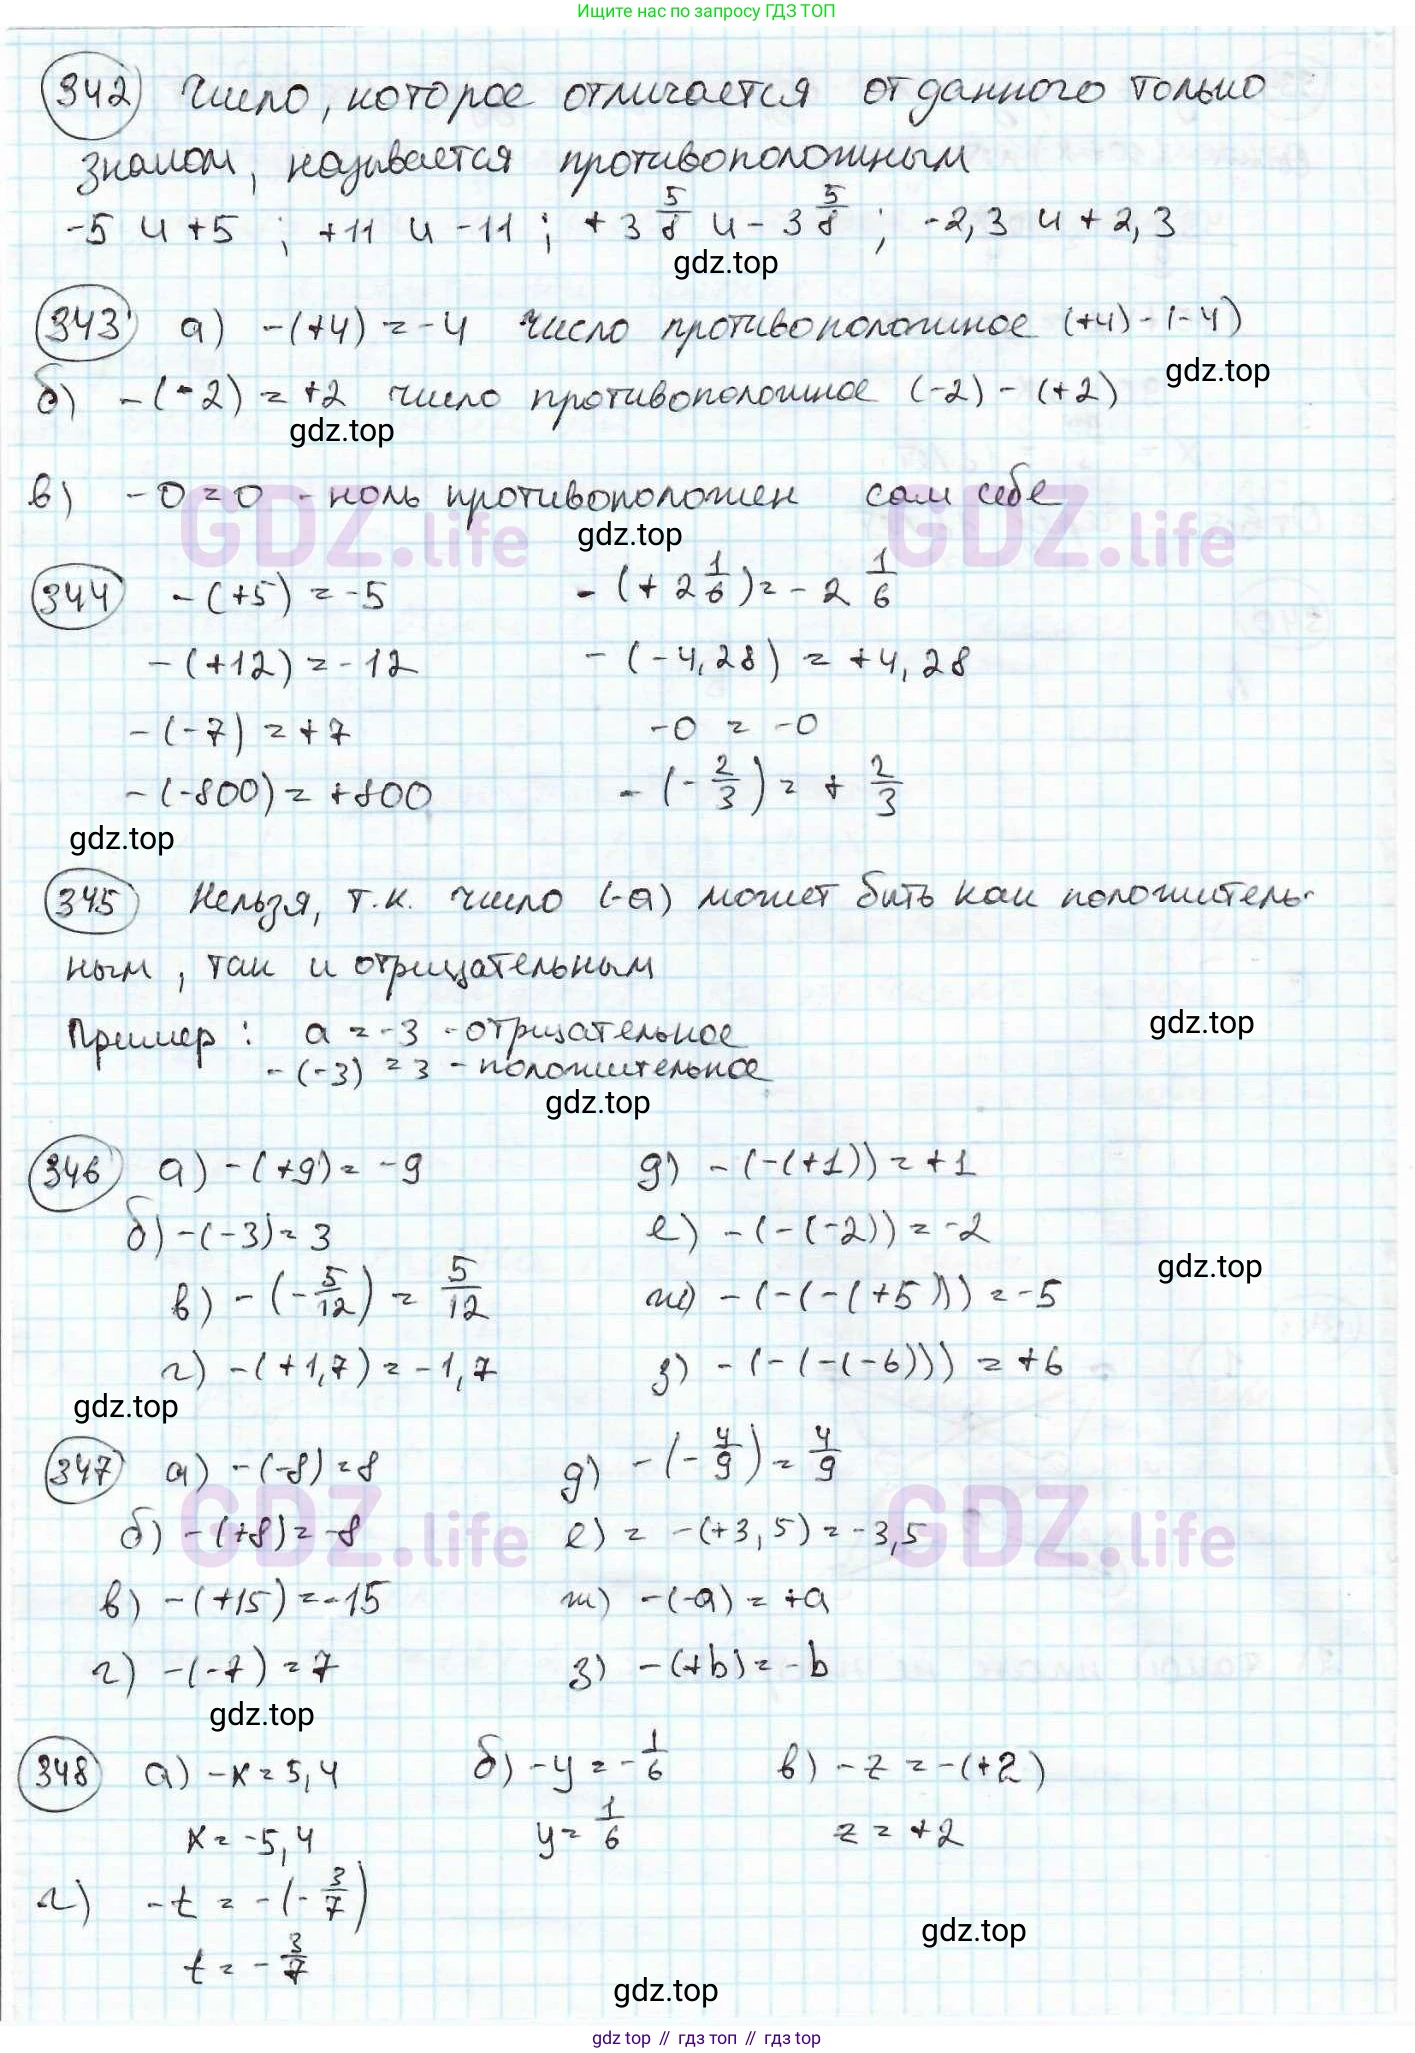 Ищите нас по запросу ГДЗ ТОП
342 Число, которое отличается от данного только
знаком, называется противоположным
-5 и +5 ; +11 и -11 ; +3 5/8 и -3 5/8 ; -2,3 и +2,3
gdz.top
343 а) -(+4) = -4 число противоположное (+4) - (-4)
gdz.top
б) -(-2) = +2 число противоположное (-2) - (+2)
gdz.top
в) -0 = 0 - ноль противоположен сам себе
GDZ.life GDZ.life
gdz.top
344 -(+5) = -5 -(+2 1/6) = -2 1/6
-(+12) = -12 -(-4,28) = +4,28
-(-7) = +7 -0 = -0
-(-800) = +800 -(-2/3) = +2/3
gdz.top
345 Нельзя, т.к. число (-a) может быть как положитель-
ным, так и отрицательным
Пример: a = -3 - отрицательное
gdz.top
-(-3) = 3 - положительное
gdz.top
346 а) -(+9) = -9 д) -(-(+1)) = +1
б) -(-3) = 3 е) -(-(-2)) = -2
gdz.top
в) -(-5/12) = 5/12 ж) -(-(-(+5))) = -5
г) -(+1,7) = -1,7 з) -(-(-(-6))) = +6
gdz.top
347 а) -(-8) = 8 д) -(-4/9) = 4/9
б) -(+8) = -8 е) = -(+3,5) = -3,5
GDZ.life GDZ.life
в) -(+15) = -15 ж) -(-a) = +a
г) -(-7) = 7 з) -(+b) = -b
gdz.top
348 а) -x = 5,4 б) -y = -1/6 в) -z = -(+2)
x = -5,4 y = 1/6 z = +2
г) -t = -(-3/7)
gdz.top
t = -3/7
gdz.top
gdz top // гдз топ // gdz top